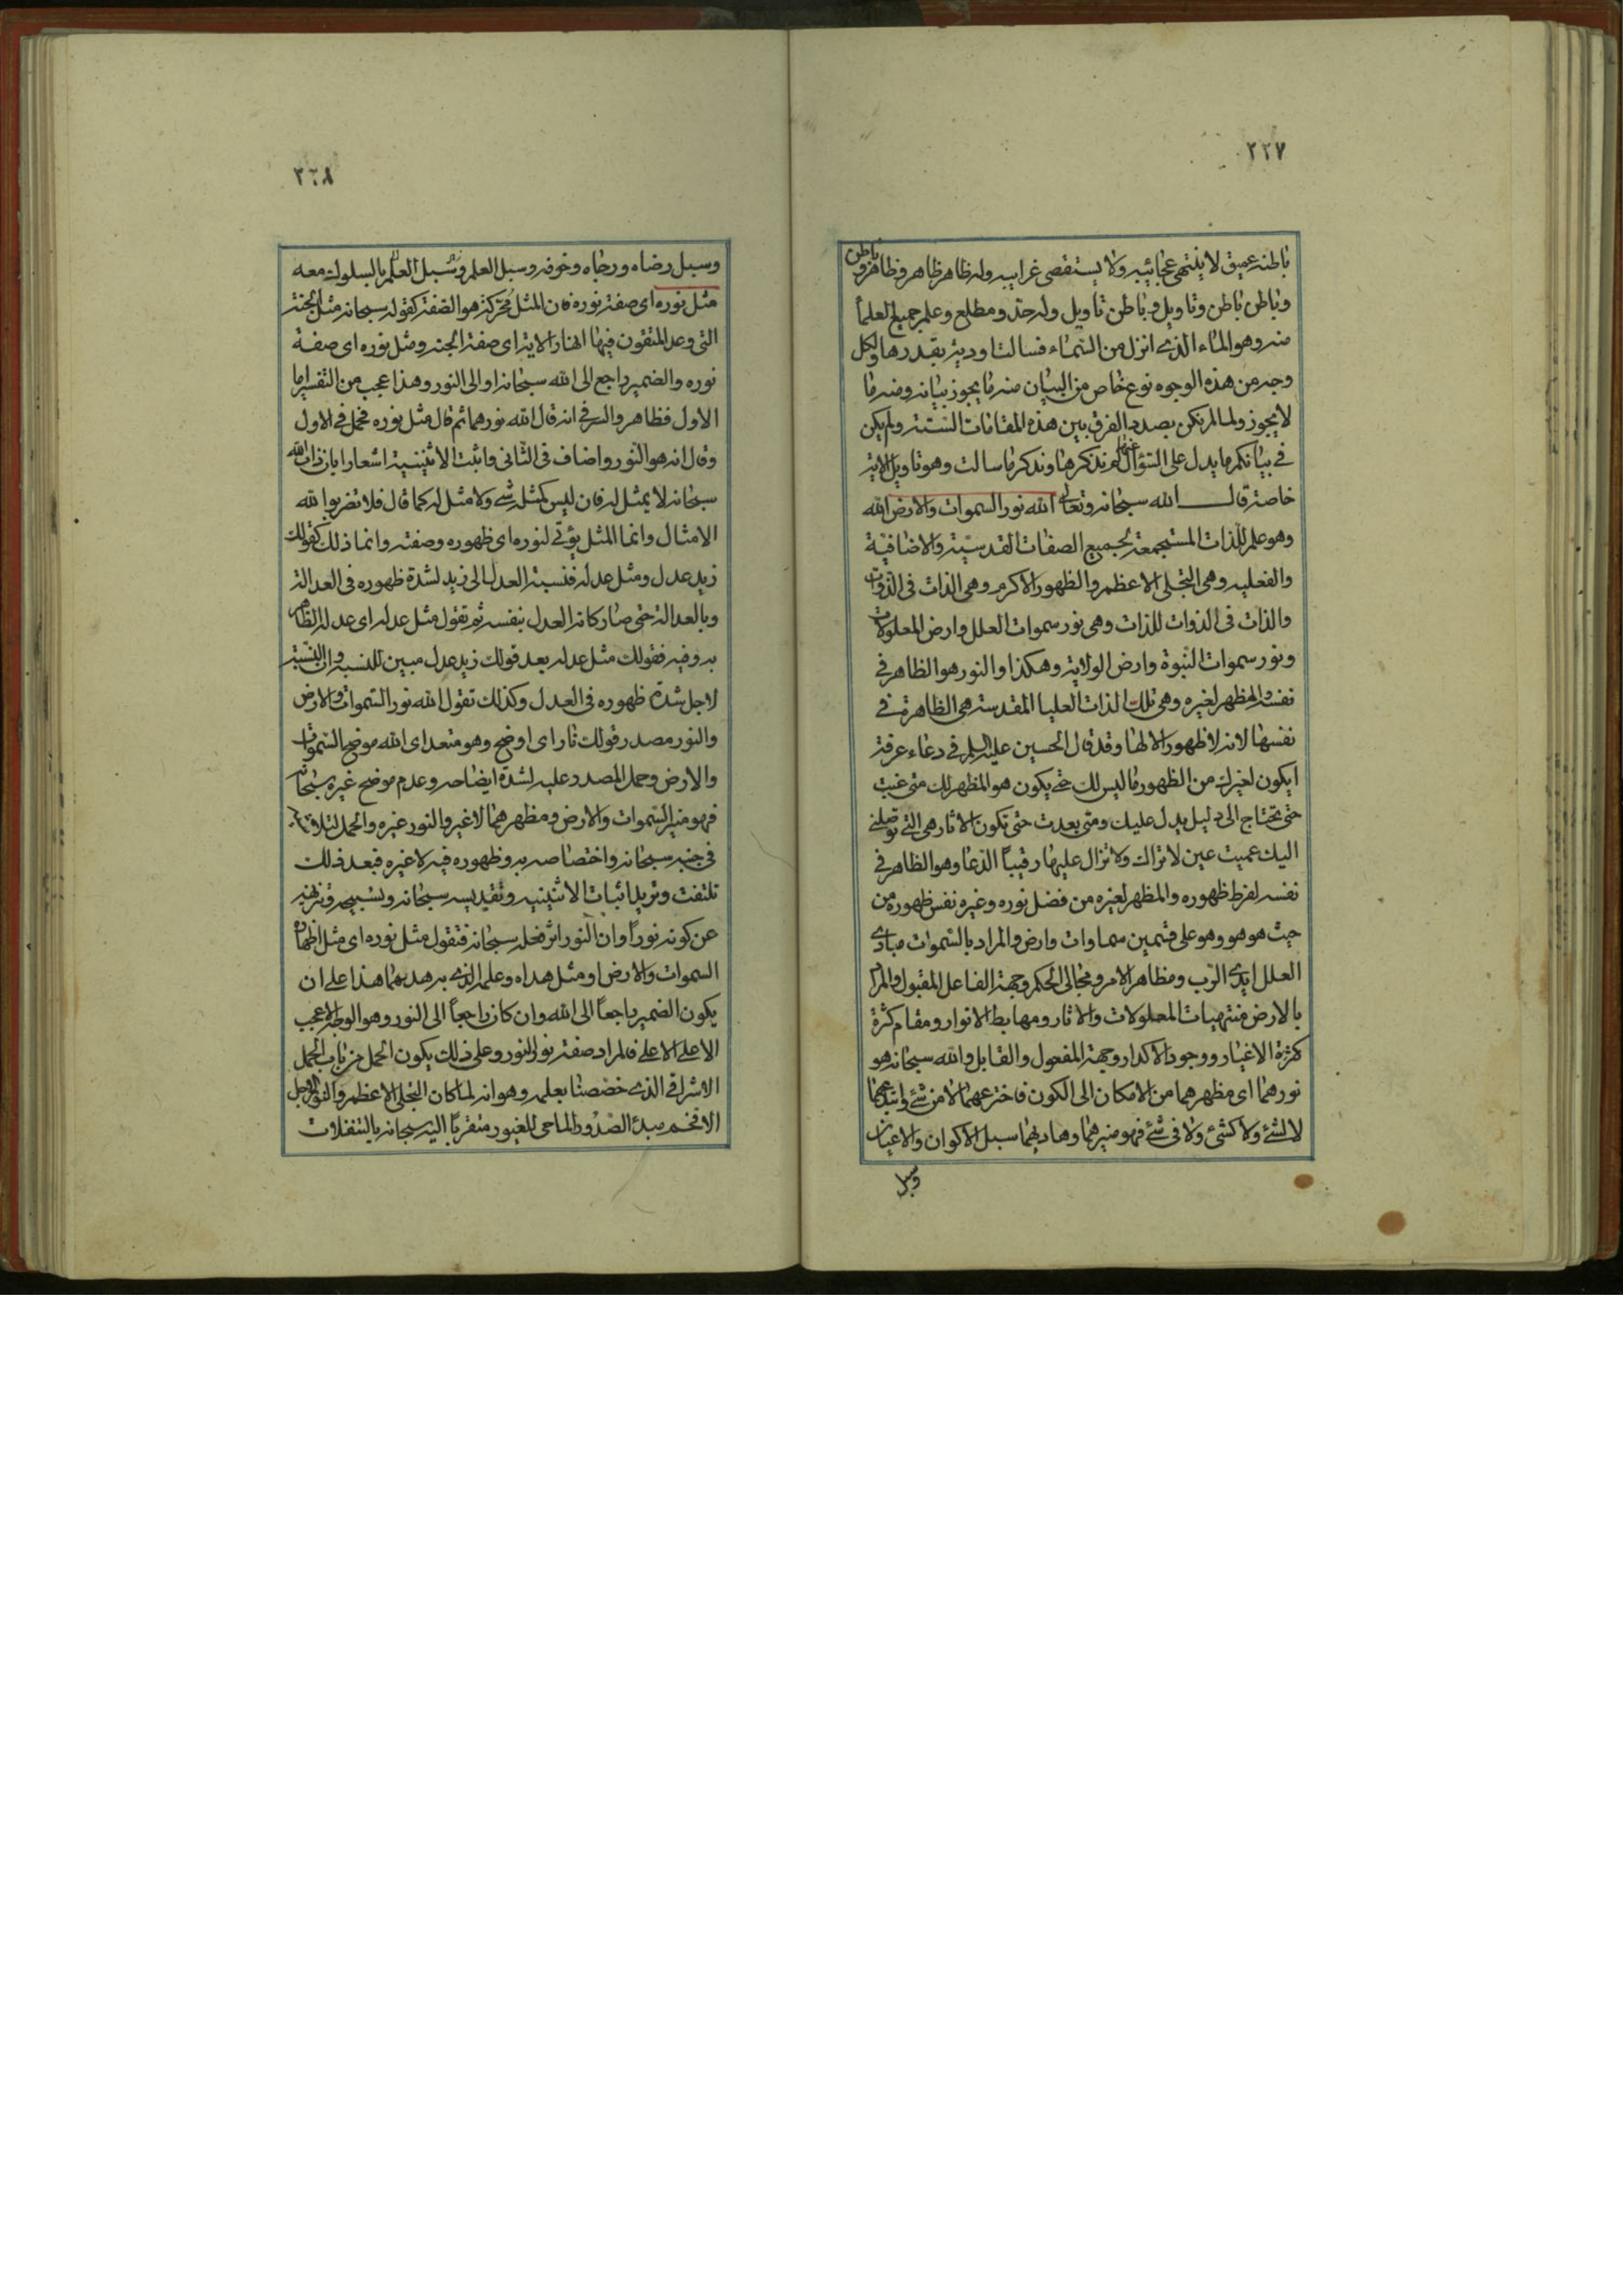 ٢٢٧
باطنه عميق لا ينتهي عجائبه ولا يستقصى غرايبه وله ظاهر ظاهر وظاهر وباطن
وباطن باطن وتاويل وباطن تاويل وله حد ومطلع وعلم جميع العلما
منه وهو الماء الذي انزل من السماء فسالت اودية بقدرها ولكل
وجه من هذه الوجوه نوع خاص من البيان منه ما يجوز بيانه ومنه ما
لا يجوز ولما لم نكن بصدد الفرق بين هذه المقامات الستة ولم يكن
في بيانكم ما يدل على السؤال عنها لم نذكرها ونذكر ما سالت وهو تاويل الاية
خاصة قال الله سبحانه وتعالى الله نور السموات والارض الله
وهو علم للذات المستجمعة لجميع الصفات القدسية والاضافية
والفعليه وهي التجلي الاعظم والظهور الاكرم وهي الذات في الذوات
والذات في الذوات للذات وهي نور سموات العلل وارض المعلولات
ونور سموات النبوة وارض الولاية وهكذا والنور هو الظاهر في
نفسه والمظهر لغيره وهي تلك الذات العليا المقدسة هي الظاهرة في
نفسها لانه لا ظهور الا لها وقد قال الحسين عليه السلم في دعاء عرفة
ايكون لغيرك من الظهور ما ليس لك حتى يكون هو المظهر لك متى غبت
حتى تحتاج الى دليل يدل عليك ومتى بعدت حتى تكون الاثار هي التي توصلني
اليك عميت عين لا تراك ولا تزال عليها رقيباً الدعا وهو الظاهر في
نفسه لفرط ظهوره والمظهر لغيره من فضل نوره وغيره نفس ظهوره من
حيث هو هو وهو على قسمين سماوات وارض والمراد بالسموات مبادي
العلل ايدي الرب ومظاهر الامر ومجالي الحكم وجهة الفاعل المقبول والمراد
بالارض منتهيات المعلولات والاثار ومهابط الانوار ومقام كثرة
كثرة الاغيار ووجود الاكدار وجهة المفعول والقابل والله سبحانه هو
نورهما اى مظهرهما من الامكان الى الكون فاخترعهما لا من شئ وابتدعهما
لا لشئ ولا كشئ ولا في شئ فهو منيرهما وهاديهما سبل الاكوان والاعيان
وسبل
٢٢٨
وسبل رضاه ورجاه وخوفه وسبل العلم وسبل العلم بالسلوك معه
مثل نوره اى صفة نوره فان المثل محركة هو الصفة كقوله سبحانه مثل الجنة
التي وعد المتقون فيها انهار الاية اى صفة الجنة ومثل نوره اى صفة
نوره والضمير راجع الى الله سبحانه او الى النور وهذا عجب من التفسير اما
الاول فظاهر والسر في انه قال الله نورهما ثم قال مثل نوره فحمل في الاول
وقال انه هو النور واضاف في الثاني واثبت الاثنينية اشعارا بان ذات الله
سبحانه لا يمثل له فان ليس كمثله شئ ولا مثل له كما قال فلا تضربوا لله
الامثال وانما المثل يؤتى لنوره اى ظهوره وصفته وانما ذلك كقولك
زيد عدل ومثل عدله فنسبة العدل الى زيد لشدة ظهوره في العدالة
وبالعدالة حتى صار كانه العدل بنفسه ثم تقول مثل عدله اى عدله الظاهر
به وفيه فقولك مثل عدله بعد قولك زيد عدل مبين للنسبه وان النسبة
لاجل شدة ظهوره في العدل وكذلك تقول الله نور السموات والارض
والنور مصدر قولك نار اى اوضح وهو متعد اى الله موضح السموات
والارض وحمل المصدر عليه لشدة ايضاحه وعدم موضح غيره سبحانه
فهو منير السموات والارض ومظهرهما لا غير والنور غيره والحمل لتلاشيه
في جنبه سبحانه واختصاصه به وظهوره فيه لا غيره فبعد ذلك
تلتفت وتريد اثبات الاثنينيه وتقديسه سبحانه وتسبيحه وتنزيهه
عن كونه نوراً وان النور اثر فعله سبحانه فتقول مثل نوره اى مثل اظهاره
السموات والارض او مثل هداه وعلمه الذي به هديهما هذا على ان
يكون الضمير راجعاً الى الله وان كان راجعاً الى النور وهو الوجه الاعجب
الاعلى الاعلى فالمراد صفة نور النور وعلى ذلك يكون الحمل من باب الحمل
الاشراقي الذي خصصنا بعلمه وهو انه لما كان التجلي الاعظم والنور الاجل
الافخم مبدئ الصدور الماحي للغيور متقرباً اليه سبحانه بالتنفلات